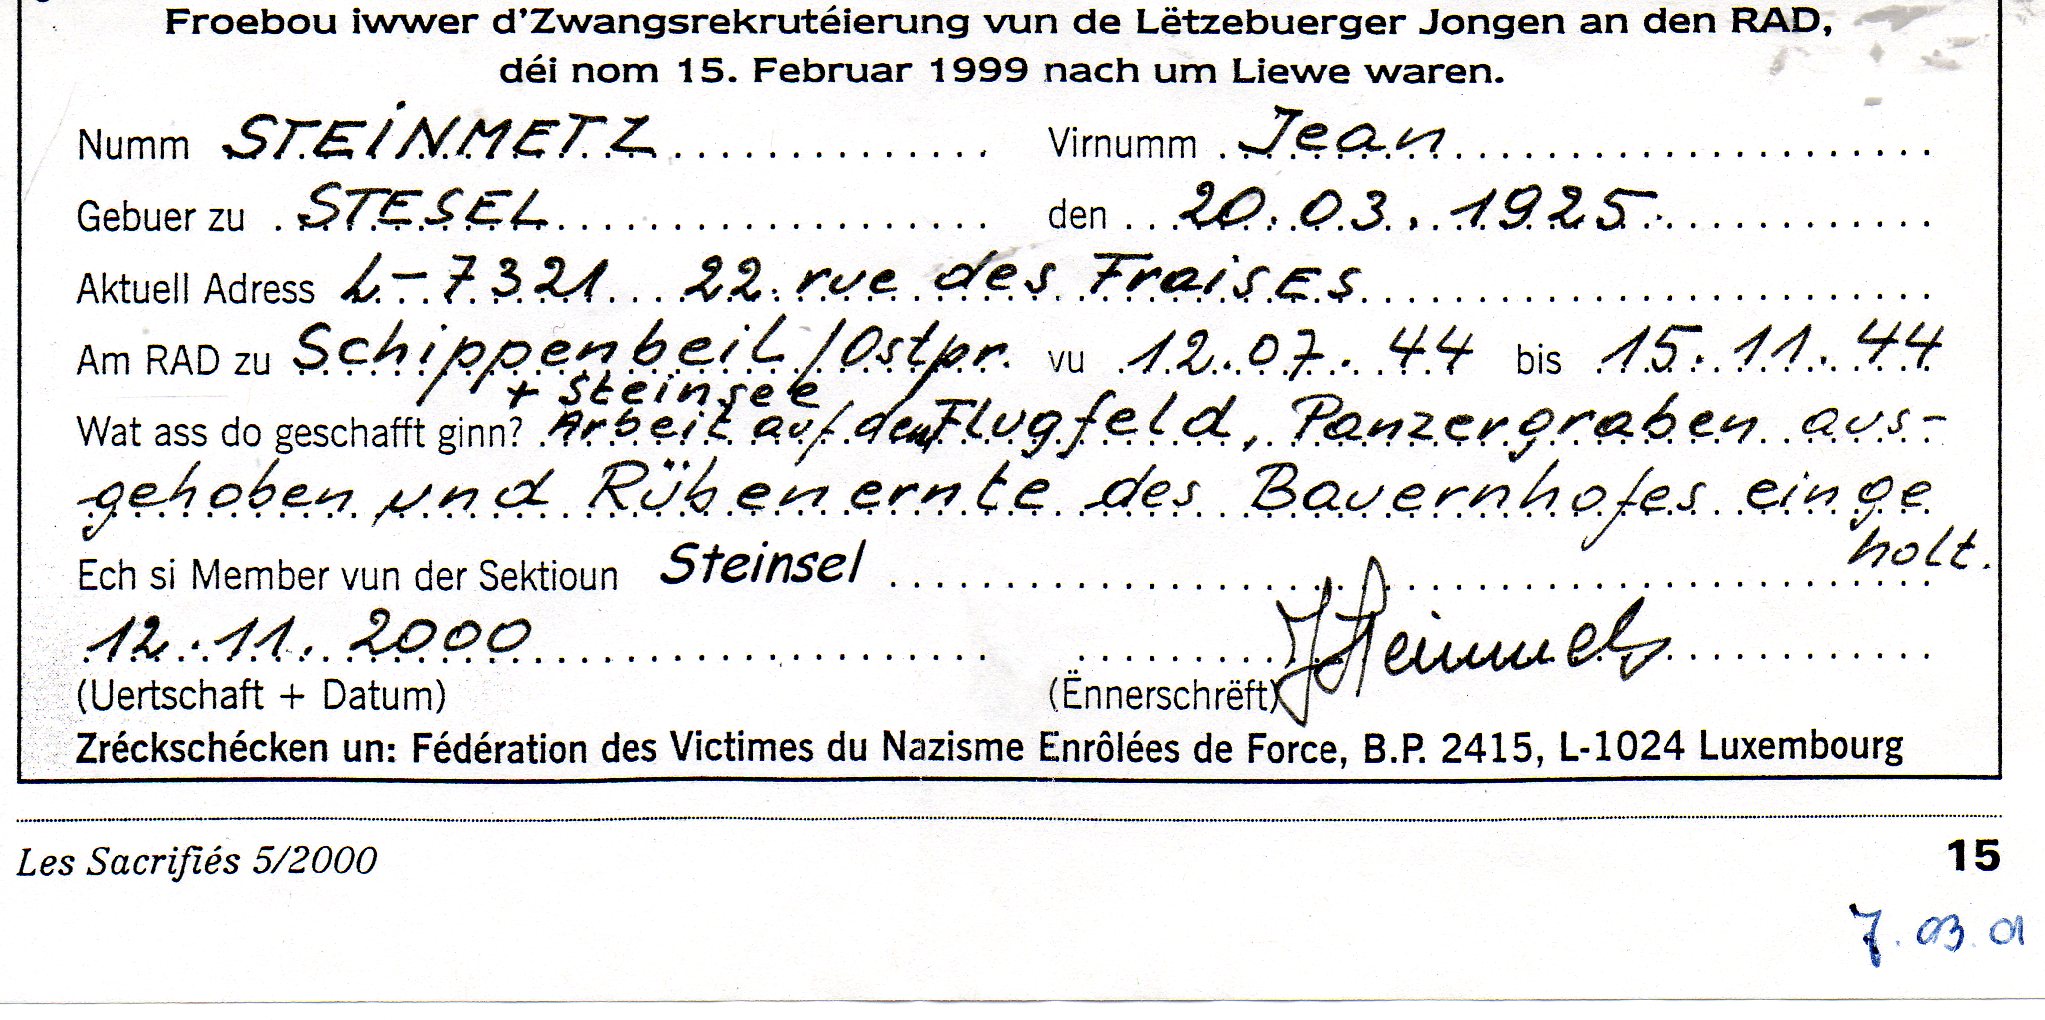 Froebou iwwer d'Zwangsrekrutéierung vun de Lëtzebuerger Jongen an den RAD,
déi nom 15. Februar 1999 nach um Liewe waren.
Numm STEINMETZ Virnumm Jean
Gebuer zu STESEL den 20.03.1925
Aktuell Adress L-7321 22 rue des Fraises
Am RAD zu Schippenbeil/Ostpr. vu 12.07.44 bis 15.11.44
+ Steinsee
Wat ass do geschafft ginn? Arbeit auf dem Flugfeld, Panzergraben aus-
gehoben und Rübenernte des Bauernhofes einge
holt.
Ech si Member vun der Sektioun Steinsel
12.11.2000 J Steinmetz
(Uertschaft + Datum) (Ënnerschrëft)
Zréckschécken un: Fédération des Victimes du Nazisme Enrôlées de Force, B.P. 2415, L-1024 Luxembourg
Les Sacrifiés 5/2000 15
7.03.01